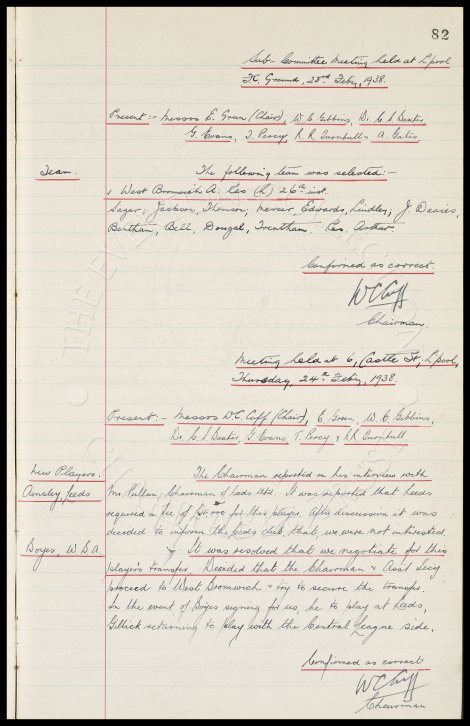 82
Sub-Committee Meeting held at L'pool
F.C. Ground, 23rd Feby, 1938.
Present:- Messrs E. Green (Chair), W. C. Gibbins, Dr. C. S. Baxter,
G. Evans, T. Percy, R. R. Turnbull & A. Gates.
Team. The following team was selected:-
v West Bromwich A. Res (H) 26th inst.
Sagar; Jackson, Thomson, Mercer, Edwards, Lindley, J. Davies,
Bentham, Bell, Dougal, Trentham. Res. Arthur.
Confirmed as correct.
W C Cuff
Chairman.
Meeting held at 6, Castle St, L'pool,
Thursday, 24th Feby, 1938.
Present:- Messrs W.C. Cuff (Chair), E. Green, W. C. Gibbins,
Dr. C. S. Baxter, G. Evans, T. Percy & R.R. Turnbull
New Players. The Chairman reported on his interview with
Ainsley, Leeds Mr. Pullan, Chairman of Leeds Utd. It was reported that Leeds
required a fee of for this player. After discussion it was
decided to inform the Leeds club that we were not interested.
Boyes, W.B.A. It was resolved that we negotiate for this
player's transfer. Decided that the Chairman & Ass't Secy
proceed to West Bromwich & try to secure the transfer.
In the event of Boyes signing for us, he to play at Leeds,
Gillick returning to play with the Central League side.
Confirmed as correct
W C Cuff
Chairman